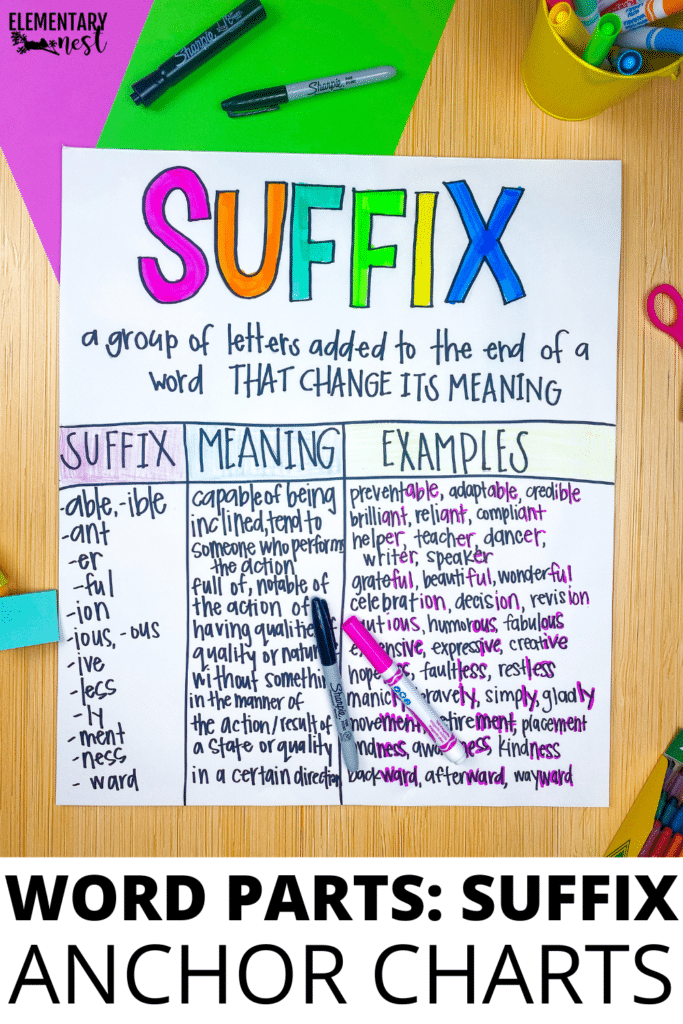 ELEMENTARY
nest
Sharpie
Sharpie
SUFFIX
a group of letters added to the end of a
word THAT CHANGE ITS MEANING
SUFFIX MEANING EXAMPLES
-able, -ible capable of being preventable, adaptable, credible
-ant inclined, tend to brilliant, reliant, compliant
-er someone who perform helper, teacher, dancer,
the action writer, speaker
-ful full of, notable of grateful, beautiful, wonderful
-ion the action of celebration, decision, revision
-ious, -ous having humorous, fabulous
-ive quality or expressive, creative
-less without faultless, restless
-ly in the manner of simply, gladly
-ment the action/result of placement
-ness a state or quality kindness
-ward in a certain direction backward, afterward, wayward
Sharpie
WORD PARTS: SUFFIX
ANCHOR CHARTS